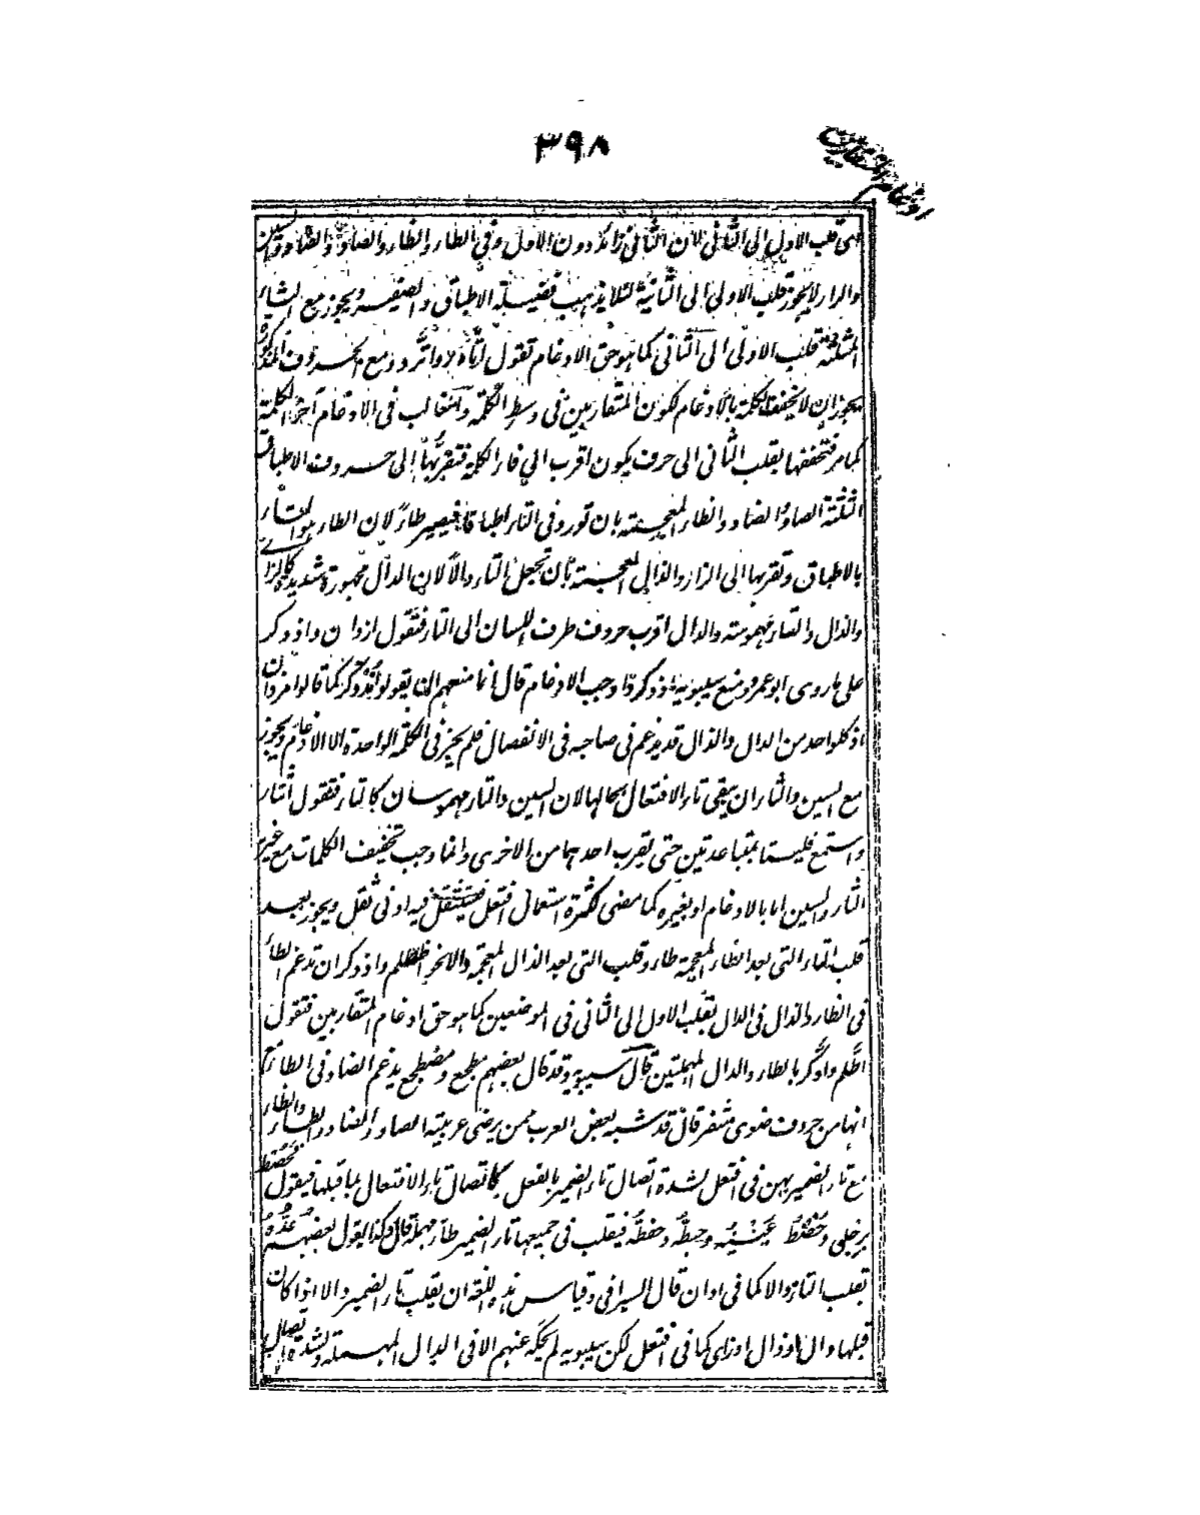 ٣٩٨
ادغام المتقاربين
قلب الاول الى الثانى لان الثانى زائد دون الاول وفى الطاء والظاء والصاد والضاد والسين
والزاء لا يجوز قلب الاولى الى الثانية لئلا يذهب فضيلة الاطباق والصفير ويجوز مع الثاء
المثلثة قلب الاولى الى الثانى كما هو حق الادغام تقول اثأر واترد ومع الحروف المذكورة
يجوز ان لا يخفف الكلمة بالادغام لكون المتقاربين فى وسط الكلمة والغالب فى الادغام آخر الكلمة
كما مر فتخففها بقلب الثانى الى حرف يكون اقرب الى فاء الكلمة فتقربها الى حروف الاطباق
الثلثة الصاد والضاد والظاء المعجمة بان تورد فى التاء اطباقا فيصير طاء لان الطاء هو التاء
بالاطباق وتقربها الى الزاء والذال المعجمة بان تجعل التاء دالا لان الدال مجهورة شديدة كالزاء
والذال والتاء مهموسة والدال اقرب حروف طرف اللسان الى التاء فتقول ازدان واذدكر
على ما روى ابو عمرو ومنع سيبويه اذدكر واوجب الادغام قال انما منعهم ان يقولوا مذدكر كما قالوا مزدان
ان كل واحد من الدال والذال قد يدغم فى صاحبه فى الانفصال فلم يجز فى الكلمة الواحدة الا الادغام ويجوز
مع السين والثاء ان يبقى تاء الافتعال بحالها لان السين والثاء مهموستان كالتاء فتقول اثتار
واستمع فليستا بمتباعدتين حتى يقرب احدهما من الاخرى وانما وجب تخفيف الكلمات مع غير
الثاء والسين اما بالادغام او بغيره كما مضى لكثرة استعمال افتعل فيستثقل فيه ادنى ثقل ويجوز بعد
قلب التاء التى بعد الظاء المعجمة طاء وقلب التى بعد الذال المعجمة دالا نحو اظطلم واذدكر ان تدغم الظاء
فى الطاء والذال فى الدال بقلب الاول الى الثانى فى الموضعين كما هو حق ادغام المتقاربين فتقول
اطلم وادكر بالطاء والدال المهملتين قال سيبويه وقد قال بعضهم مطجع ومضطجع يدغم الضاد فى الطاء مع
انها من حروف ضوى مشفر قال قد شبه بعض العرب ممن يرضى عربيته الصاد والضاد والطاء والظاء
مع تاء الضمير بهن فى افتعل لشدة اتصال تاء الضمير بالفعل كاتصال تاء الافتعال بما قبلها فيقول فحصط
برجلى وحضط عنه وخبطه وحفطه فيقلب فى جميعها تاء الضمير طاء مهملة قال وكذا يقول بعضهم عده
بقلب التاء دالا كما فى ادان قال السيرافى وقياس هذه اللغة ان يقلب تاء الضمير دالا اذا كان
قبلها دال او ذال او زاى كما فى افتعل لكن سيبويه لم يحكه عنهم الا فى الدال المهملة ولشدة اتصال